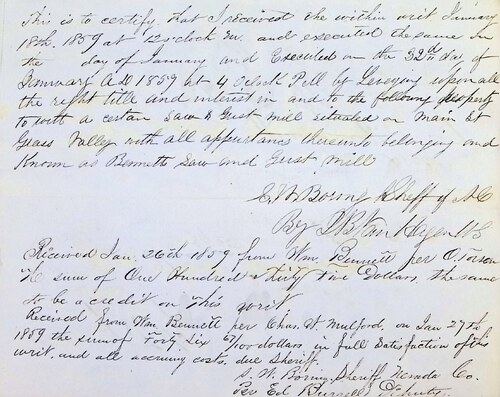 This is to certify that I received the within writ January
18th. 1859 at 12 oclock M. and executed the same in
the day of January and Executed on the 22nd day of
January AD 1859 at 4 Oclock P.M by Leveying upon all
the right title and interest in and to the following property
to with a certain Saw & Gust mill situated on Main St
Grass Valley with all appurtances thereunto belonging and
Known as Bennetts Saw and Gust Mill
S W Boring Sheff of N C
By Van
Received Jan. 26th 1859 from Wm. Bennett per O.
the sum of One Hundred & Five Dollars, the same
to be a credit on this writ
Received from Wm. Bennett per Chas. W. Mulford, on Jan 27th
1859 the sum of Forty Six /100 dollars in full Satisfaction of this
writ. and all accruing costs. due Sheriff.
S. W. Boring Sheriff Nevada Co.
Per Ed Burrell Deputy